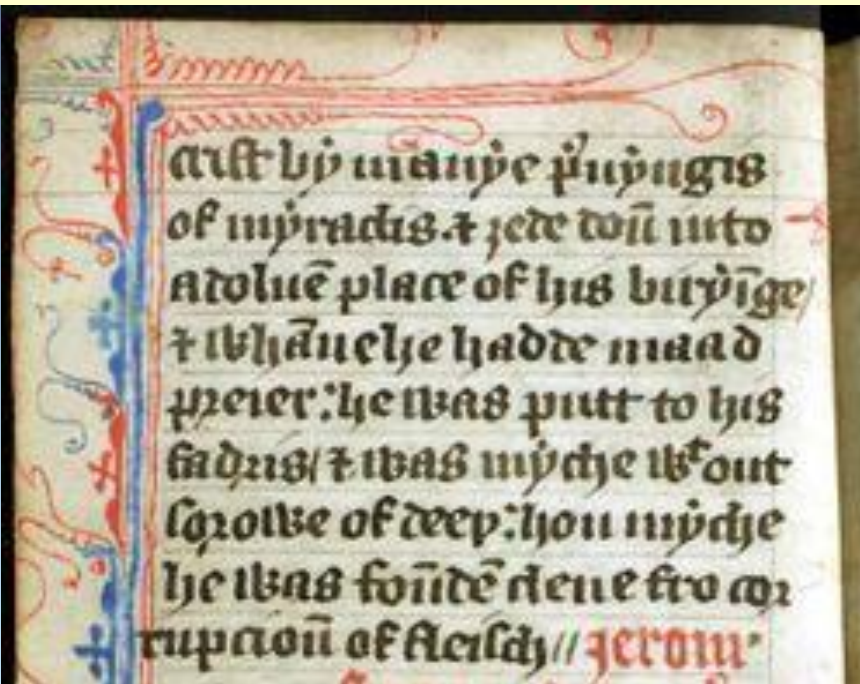 crist bẏ manẏe p̉uẏngis
of mẏraclis. ⁊ ȝede doū into
a doluē place of his birẏīge/
⁊ whāne he hadde maad
preier: he was putt to his
fadris/ ⁊ was mẏche wᵗout
sorowe of deeþ: hou mẏche
he was foūdē clene fro cor
rupcioū of fleisch// Jerom